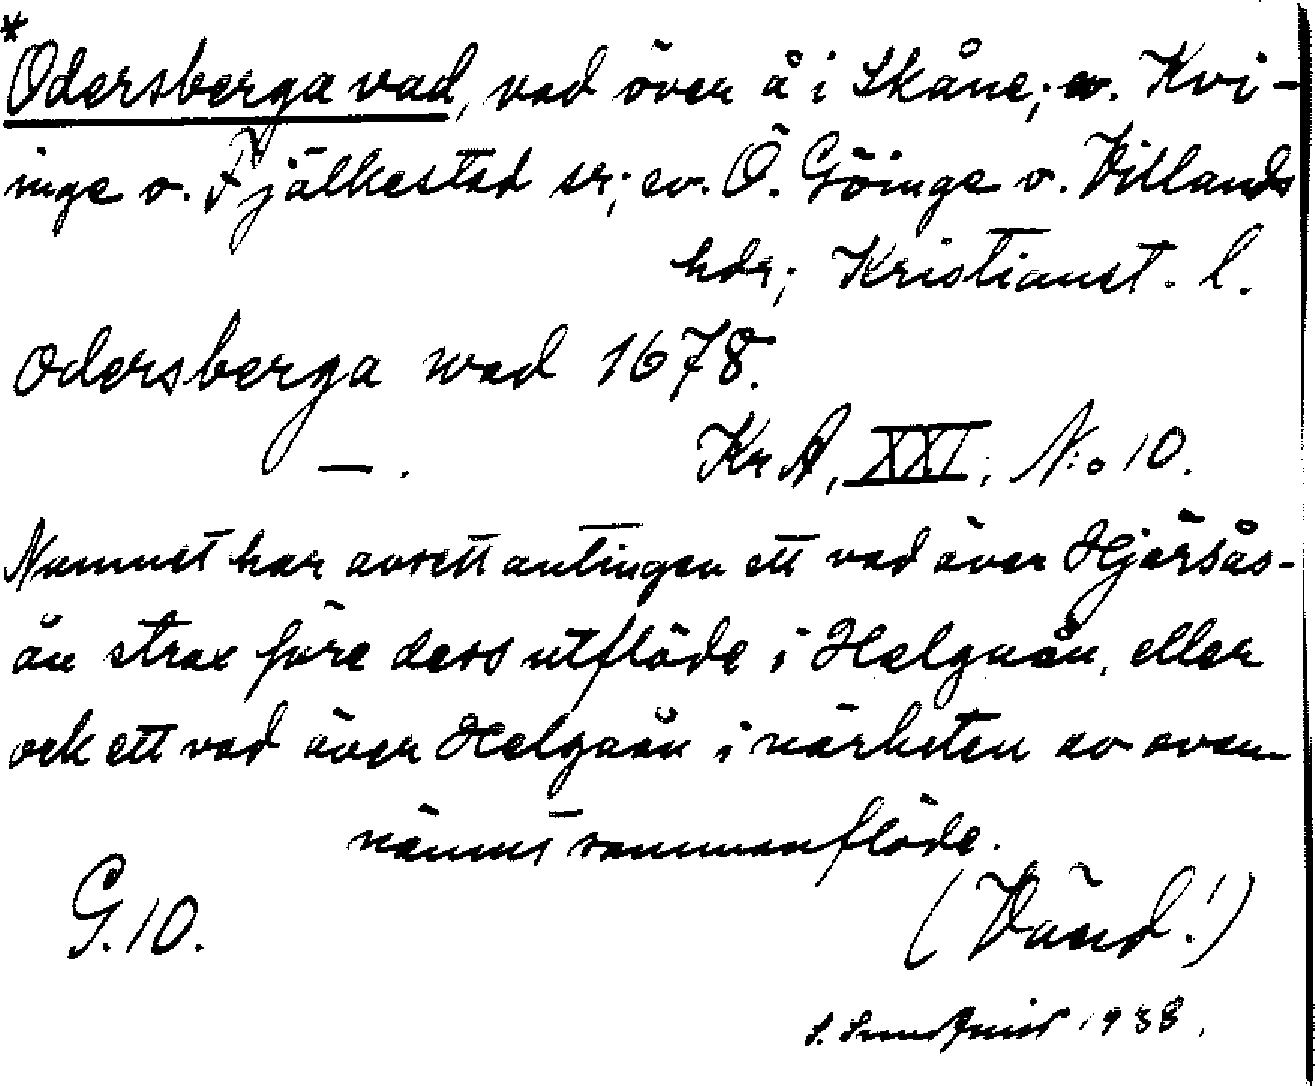 *Odersberga vad, vad över å i Skåne; ev. Kvi-
inge o. Fjälkestad sr; ev. Ö. Göinge o. Villands
hdr; Kristianst. l.
Odersberga wad 1678.
— . KrA, XXI; N:o 10.
Namnet har avsett antingen ett vad över Hjärsås-
ån strax före dess utflöde i Helgeån, eller
ock ett vad över Helgeån i närheten av ovan-
nämnt sammanflöde.
G.10. (Vänd!)
S. Sundquist 1938.